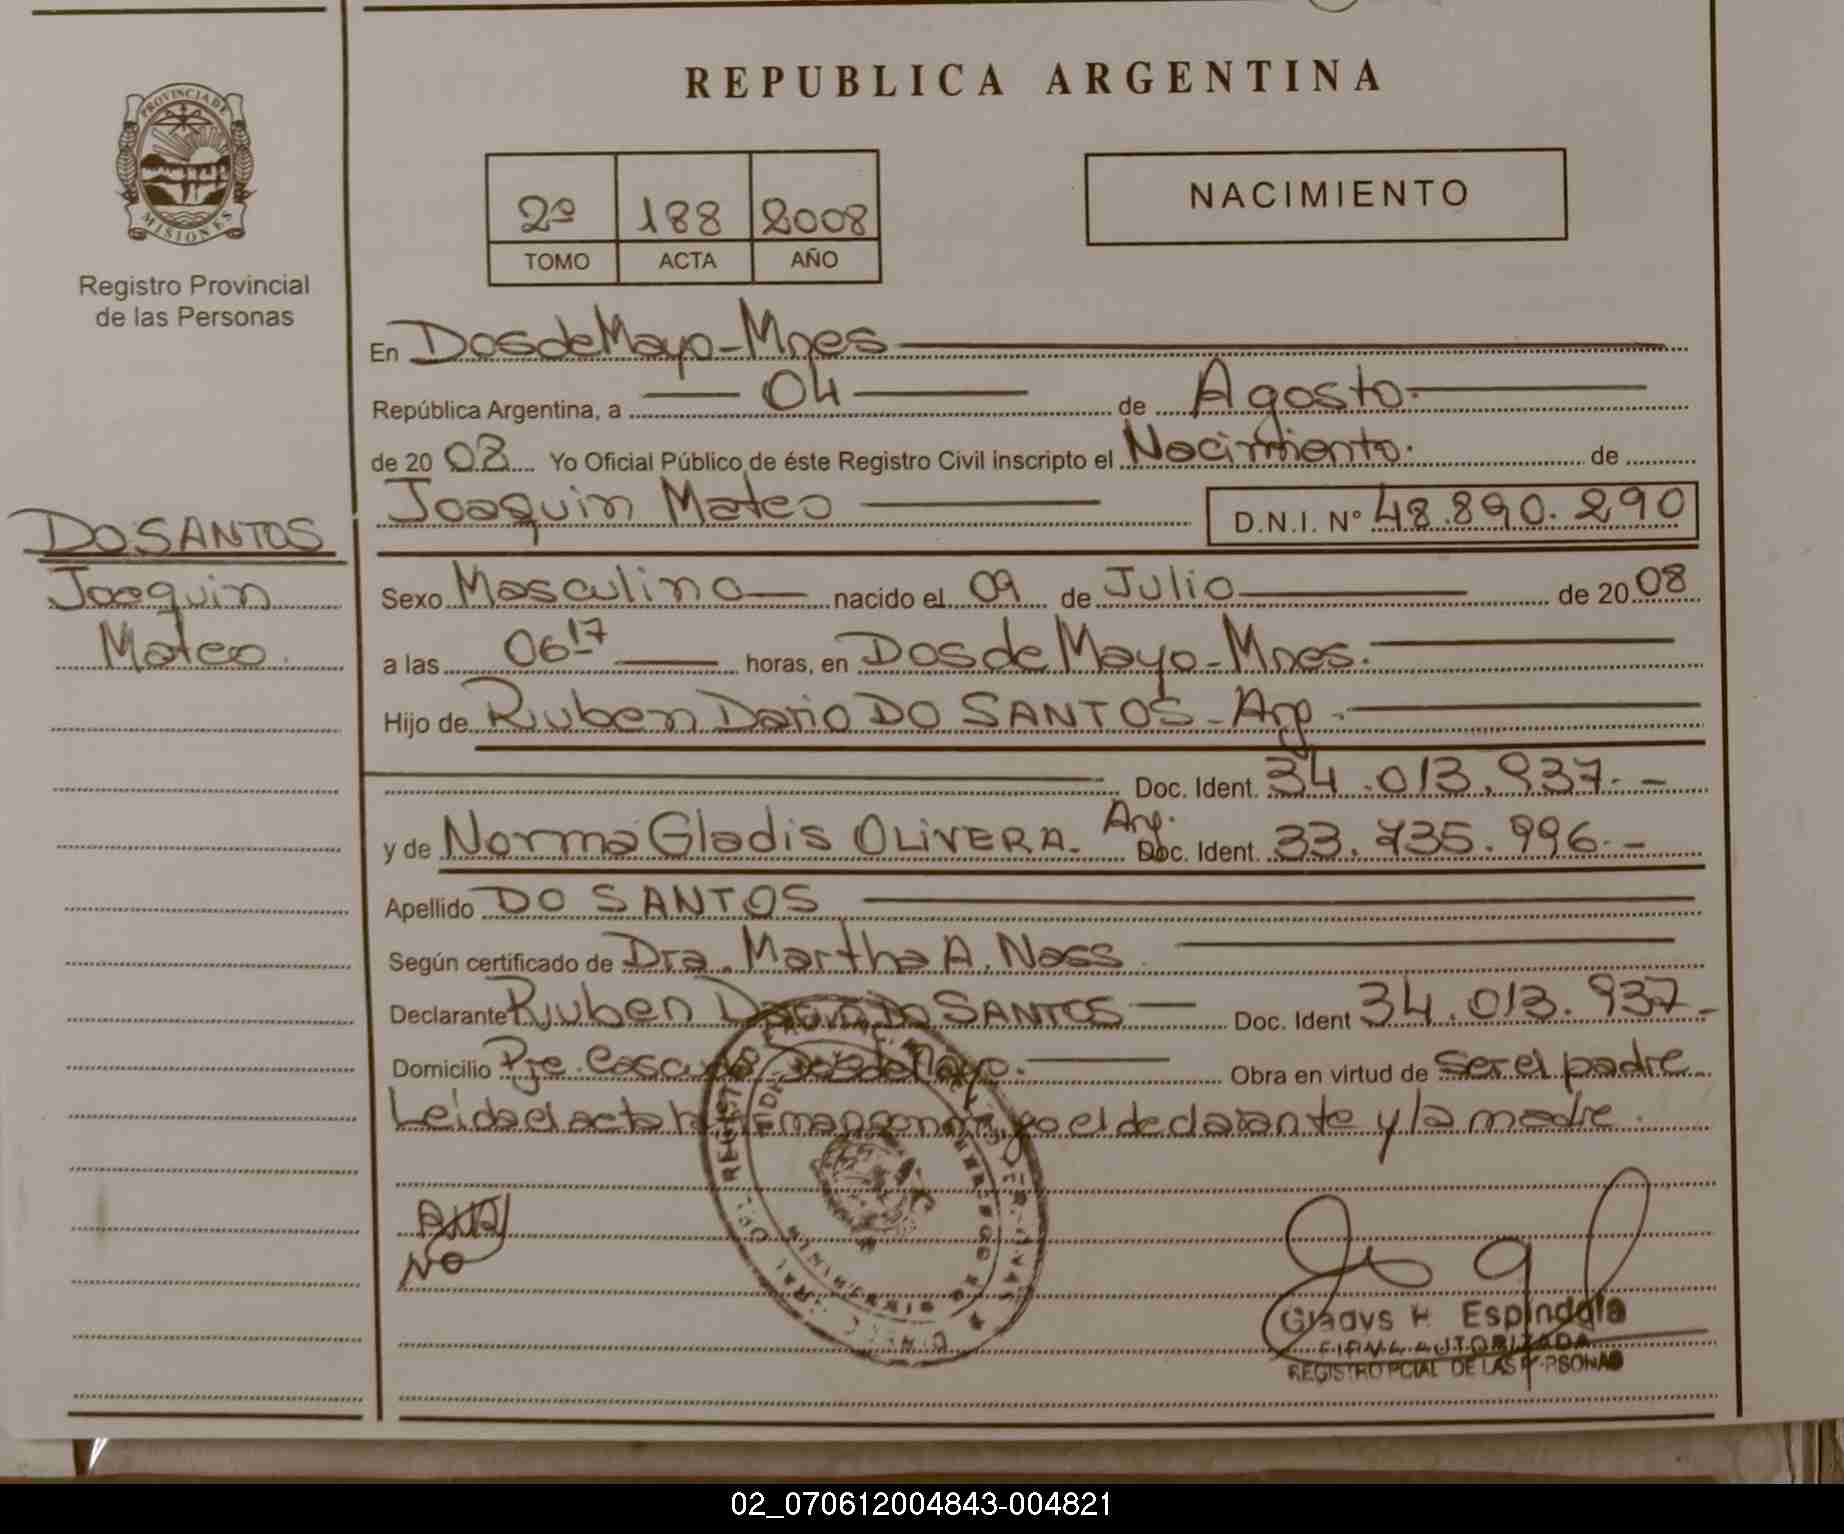 REPUBLICA ARGENTINA
PROVINCIA DE
MISIONES
Registro Provincial
de las Personas
2º 188 2008
TOMO ACTA AÑO
NACIMIENTO
En Dos de Mayo - Mnes
República Argentina, a 04 de Agosto.
de 20 08 Yo Oficial Público de éste Registro Civil inscripto el Nacimiento. de
Joaquin Mateo D.N.I. Nº 48.890.290
DO SANTOS
Joaquin
Mateo.
Sexo Masculino nacido el 09 de Julio de 20 08
a las 06 17 horas, en Dos de Mayo - Mnes.
Hijo de Ruben Dario DO SANTOS - Arg.
Doc. Ident. 34.013.937.-
y de Norma Gladis OLIVERA. Arg. Doc. Ident. 33.735.996.-
Apellido DO SANTOS
Según certificado de Dra. Martha A. Ness
Declarante Ruben Dario DO SANTOS Doc. Ident 34.013.937-
Domicilio Pje. Dos de Mayo. Obra en virtud de ser el padre
Leida el acta firman conmigo el declarante y la madre.
Gladys H. Espindola
FIRMA AUTORIZADA
REGISTRO PCIAL DE LAS PERSONAS
02_070612004843-004821